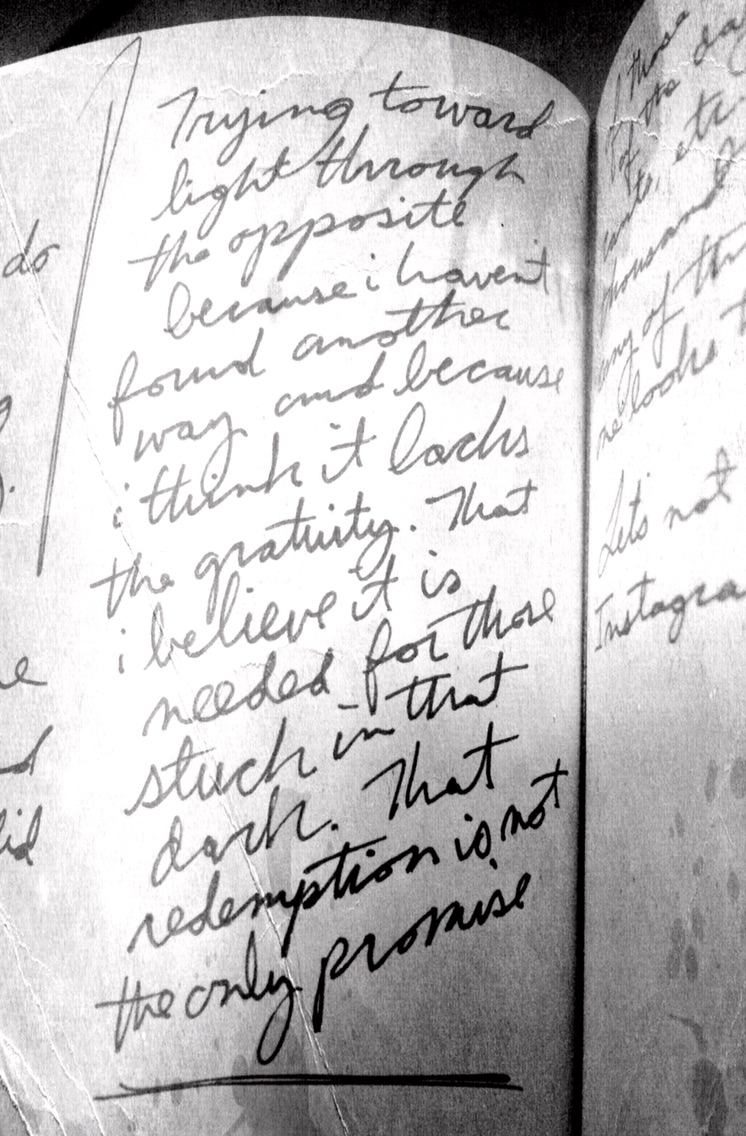 do
Trying toward
light through
the opposite
because i haven't
found another
way and because
i think it lacks
the gratuity. That
i believe it is
needed for those
stuck in that
dark. That
redemption is not
the only promise
those
of the
thousand
any of
looks
Let's not